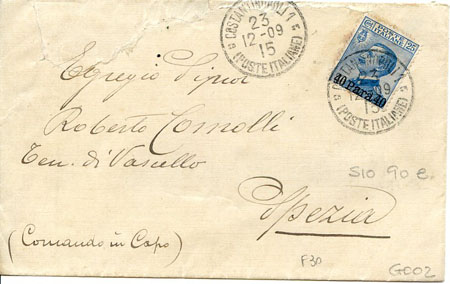 COSTANTINOPOLI 1
23
12-09
15
(POSTE ITALIANE)
25
40 Para 40
12-09
15
(POSTE ITALIANE)
Egregio Signor
Roberto Comolli
Ten. di Vascello
Spezia
(Comando in Capo)
S10 90 e.
F30
GC02